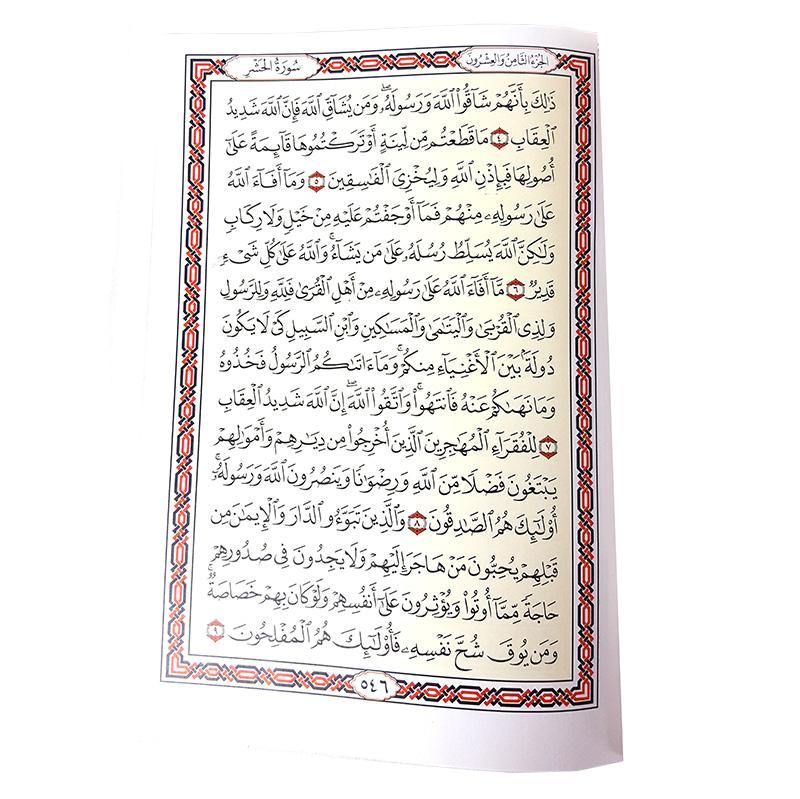 الجزء الثامن والعشرون
سورة الحشر
ذَٰلِكَ بِأَنَّهُمْ شَاقُّوا۟ ٱللَّهَ وَرَسُولَهُۥ ۖ وَمَن يُشَآقِّ ٱللَّهَ فَإِنَّ ٱللَّهَ شَدِيدُ
ٱلْعِقَابِ ٤ مَا قَطَعْتُم مِّن لِّينَةٍ أَوْ تَرَكْتُمُوهَا قَآئِمَةً عَلَىٰٓ
أُصُولِهَا فَبِإِذْنِ ٱللَّهِ وَلِيُخْزِىَ ٱلْفَٰسِقِينَ ٥ وَمَآ أَفَآءَ ٱللَّهُ
عَلَىٰ رَسُولِهِۦ مِنْهُمْ فَمَآ أَوْجَفْتُمْ عَلَيْهِ مِنْ خَيْلٍ وَلَا رِكَابٍ
وَلَٰكِنَّ ٱللَّهَ يُسَلِّطُ رُسُلَهُۥ عَلَىٰ مَن يَشَآءُ ۚ وَٱللَّهُ عَلَىٰ كُلِّ شَىْءٍ
قَدِيرٌ ٦ مَّآ أَفَآءَ ٱللَّهُ عَلَىٰ رَسُولِهِۦ مِنْ أَهْلِ ٱلْقُرَىٰ فَلِلَّهِ وَلِلرَّسُولِ
وَلِذِى ٱلْقُرْبَىٰ وَٱلْيَتَٰمَىٰ وَٱلْمَسَٰكِينِ وَٱبْنِ ٱلسَّبِيلِ كَىْ لَا يَكُونَ
دُولَةًۢ بَيْنَ ٱلْأَغْنِيَآءِ مِنكُمْ ۚ وَمَآ ءَاتَىٰكُمُ ٱلرَّسُولُ فَخُذُوهُ
وَمَا نَهَىٰكُمْ عَنْهُ فَٱنتَهُوا۟ ۚ وَٱتَّقُوا۟ ٱللَّهَ ۖ إِنَّ ٱللَّهَ شَدِيدُ ٱلْعِقَابِ
٧ لِلْفُقَرَآءِ ٱلْمُهَٰجِرِينَ ٱلَّذِينَ أُخْرِجُوا۟ مِن دِيَٰرِهِمْ وَأَمْوَٰلِهِمْ
يَبْتَغُونَ فَضْلًا مِّنَ ٱللَّهِ وَرِضْوَٰنًا وَيَنصُرُونَ ٱللَّهَ وَرَسُولَهُۥٓ ۚ
أُو۟لَٰٓئِكَ هُمُ ٱلصَّٰدِقُونَ ٨ وَٱلَّذِينَ تَبَوَّءُو ٱلدَّارَ وَٱلْإِيمَٰنَ مِن
قَبْلِهِمْ يُحِبُّونَ مَنْ هَاجَرَ إِلَيْهِمْ وَلَا يَجِدُونَ فِى صُدُورِهِمْ
حَاجَةً مِّمَّآ أُوتُوا۟ وَيُؤْثِرُونَ عَلَىٰٓ أَنفُسِهِمْ وَلَوْ كَانَ بِهِمْ خَصَاصَةٌ ۚ
وَمَن يُوقَ شُحَّ نَفْسِهِۦ فَأُو۟لَٰٓئِكَ هُمُ ٱلْمُفْلِحُونَ ٩
٥٤٦